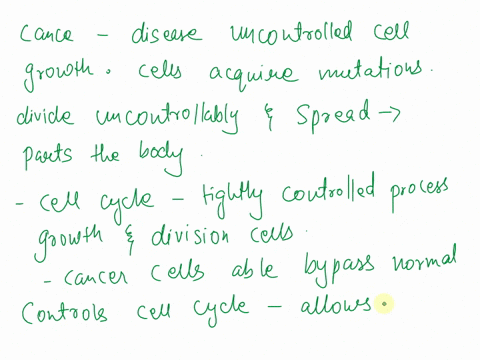 Cance - disease uncontrolled cell
growth. cells acquire mutations.
divide uncontrollably & Spread →
parts the body.
- cell cycle - tightly controlled process
growth & division cells.
- cancer cells able bypass normal
Controls cell cycle - allows